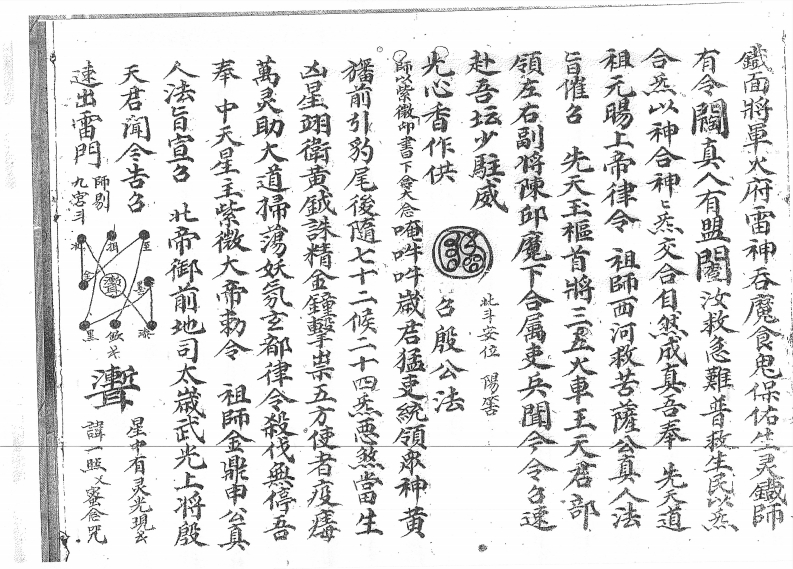 鐵面將軍火府雷神吞魔食鬼保佑生灵鐵師
有令閼真人有盟閣汝救急難普救生民以炁
合炁以神合神〻炁交合自然成真吾奉 先天道
祖元賜上帝律令 祖師西河救苦薩公真人法
旨催召 先天玉樞首將三五火車王天君部
領左右副將陳邱麾下合属吏兵聞今令召速
赴吾坛少駐威
光心香作供
北斗安位 陽窖
召殷公法
師以紫微印書下含大念唵吽吽嵗君猛吏統領衆神黃
旛前引豹尾後隨七十二候二十四炁悪煞當生
凶星翊衛黃鉞誅精金鐘擊祟五方使者疫癘
萬灵助大道掃蕩妖氛玄都律令殺伐無停吾
奉 中天星主紫微大帝勅令 祖師金鼎申公真
人法旨宣召 北帝御前地司太嵗武光上將殷
天君聞令告召
速出雷門
師剔
九宮斗
星中有灵光現
諱一照又密念咒